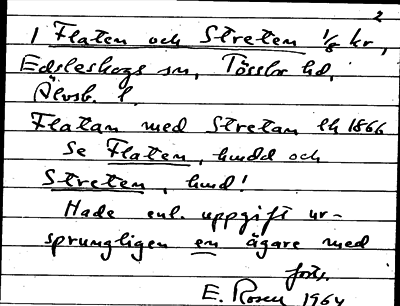 2
1 Flaten och Streten 1/8 kr,
Edsleskogs sn, Tössbo hd,
Älvsb. l.
Flatan med Stretan Ek 1866
Se Flaten, hudd och
Streten, hmd!
Hade enl. uppgift ur-
sprungligen en ägare med
forts.
E. Rosen 1964